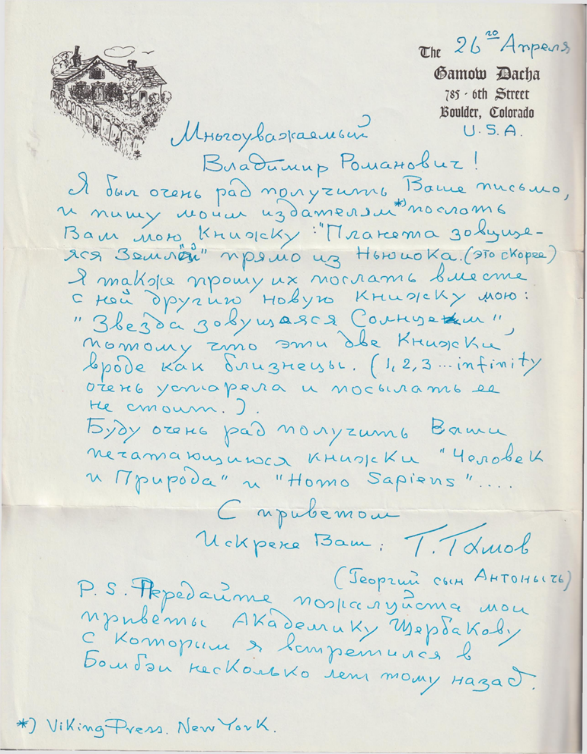 26го Апреля
The
Gamow Dacha
785 - 6th Street
Boulder, Colorado
U.S.A.
Многоуважаемый
Владимир Романович!
Я был очень рад получить Ваше письмо,
и пишу моим издателям*) послать
Вам мою книжку: "Планета зовуще-
яся Землёй" прямо из Ньюиока. (это скорее)
Я также прошу их послать вместе
с ней другую новую книжку мою:
"Звезда зовущаяся Солнцем",
потому что эти две книжки
вроде как близнецы. (1, 2, 3 ... infinity
очень устарела и посылать ее
не стоит.).
Буду очень рад получить Ваши
печатающиися книжки "Человек
и Природа" и "Homo Sapiens"....
С приветом
Искрене Ваш: Г. Гамов
(Георгий сын Антоныч)
P.S. Передайте пожалуйста мои
приветы Академику Щербакову
с которым я встретился в
Бомбэи несколько лет тому назад.
*) Viking Press. New York.